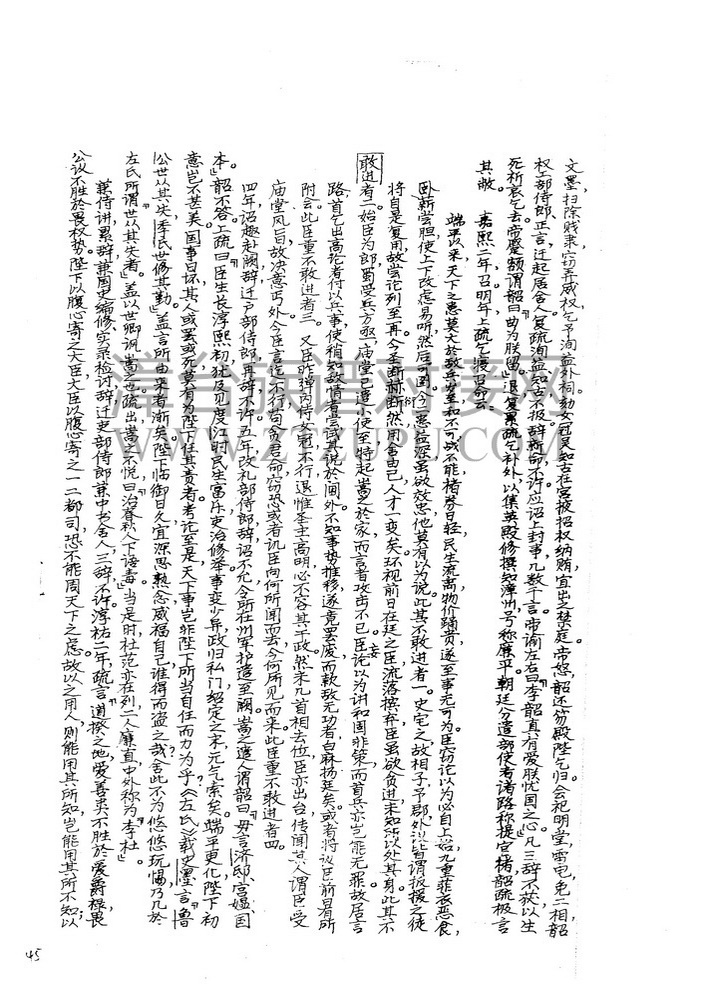 文墨扫除贱隶，窃弄威权，乞予洵益外祠。劾女冠吴知古在宫掖招权纳贿，宜出之禁庭。帝怒，韶还笏殿陛乞归。会祀明堂，雷电，免二相，韶
权工部侍郎、正言，迁起居舍人，复疏洵益、知古，不报，辞新命，不许。应诏上封事，几数千言。帝谕左右曰：李韶真有爱朕忧国之心。凡三辞不获，以生
死祈哀乞去，帝蹙额谓韶曰：曲为朕留。退，复累疏乞补外，以集英殿修撰知漳州，号称廉平。朝廷分遣部使者诸路称提官楮，韶疏极言
其敝。
嘉熙二年，召。明年，上疏乞寝召命云：
端平以来，天下之患，莫大于敌兵岁至，和不可，战不能，楮券日轻，民生流离，物价踊贵，遂至事无可为。臣窃论以为必自上始，九重菲衣恶食，
卧薪尝胆，使上下改虑易听，然后可图。今患益深，虽欲效忠，他莫有以为说。此其不敢进者一。史宅之，故相子，予郡，外议皆谓扳援之徒
将自是复用，故尝论列至再。今圣断赫然，用舍由己，人才一变矣。环视前日在廷之臣，流落摈弃，臣虽欲贪进，未知所以处其身。此其不
敢进者二。始臣为郎，蜀受兵方亟，庙堂已遣小使至，特起嵩之于家，而言者攻击不已。臣妄论以为讲和固非策，而首兵亦岂能无罪？故居言
路，首乞出高论者付以兵事，使稍知敌情者尝试其说于阃外。不知事势推移，遂竟罢废，而款敌无功者白麻扬廷矣。或者将议臣前日有所
附会。此臣重不敢进者三。又臣昨弹内侍女冠，不行，退惟圣主高明，必不容其干政。然未几首相去位，臣亦出台，传闻其人谓臣受
庙堂风旨，故决意丐外。今臣言迄不行，苟贪君命，窃恐或者讥臣向何所闻而去，今何所见而来。此臣重不敢进者四。
四年，诏趣赴阙，辞，迁户部侍郎，再辞，不许。五年，改礼部侍郎，辞，诏不允，令所在州军护遣至阙。嵩之遣人谓韶曰：毋言济邸、宫媪、国
本。韶不答。上疏曰：臣生长淳熙初，犹及见度江时民生富庶，吏治修举。事变少异，政归私门，绍定之末，元气索矣。端平更化，陛下初
意岂不甚美？国事日坏，其人或罢或死，莫有为陛下任其责者。考论至是，天下事岂非陛下所当自任而力为乎？《左氏》载史墨言：鲁
公世以其失，季氏世修其勤。盖言所由来者渐矣。陛下临御日久，宜深思熟念，威福自己，谁得而盗之哉？舍此不为，悠悠玩愒，乃几于
左氏所谓世以其失者。盖以世卿讽嵩之也。疏出，嵩之不悦，曰：治春秋人下语毒。当是时，杜范亦在列，二人廉直，中外称为李杜。
兼侍讲，累辞，兼国史编修、实录检讨，辞，迁吏部侍郎兼中书舍人，三辞，不许。淳祐二年，疏言：道揆之地，爱善类不胜于爱爵禄，畏
公议不胜于畏权势。陛下以腹心寄之大臣，大臣以腹心寄之一二都司，恐不能周天下之虑。故以之用人，则能用其所知，岂能用其所不知；以
漳台族谱对接网
45